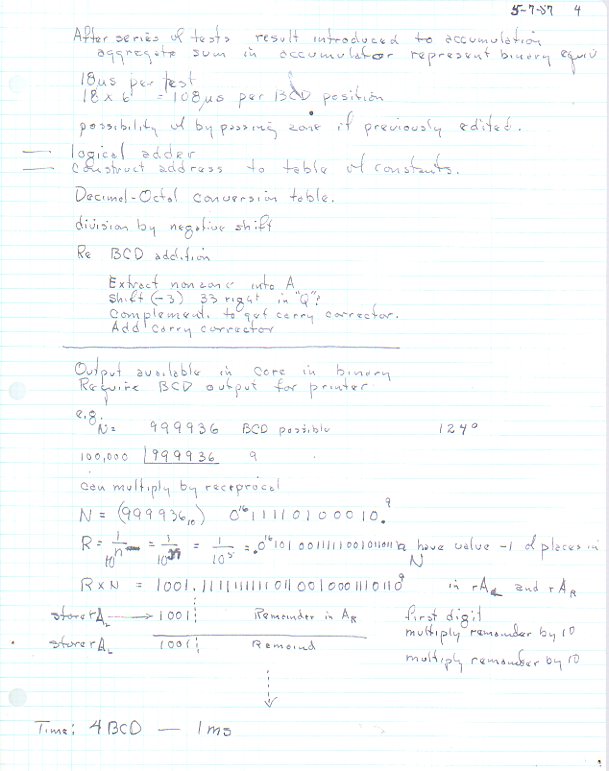 5-7-57 4
After series of tests result introduced to accumulation
aggregate sum in accumulator represent binary equiv
18us per test
18 x 6 = 108us per BCD position
possibility of by passing zone if previously edited.
logical adder
construct address to table of constants.
Decimal-Octal conversion table.
division by negative shift
Re BCD addition
Extract nonzone into A
shift (-3) 33 right in "Q"?
Complement to get carry corrector.
Add carry corrector
Output available in core in binary
Require BCD output for printer
e.g.
N = 999936 BCD possible 124°
100,000 |999936 9
can multiply by reciprocal
N = (999936₁₀)
R = 1/10ⁿ = = 1/10⁵ = have value -1 of places in
N
R x N = in rA and rA_R
store rA_L → 1001 Remainder in A_R first digit
multiply remainder by 10
store rA_L 1001 Remaind
multiply remainder by 10
Time: 4 BCD — 1 ms